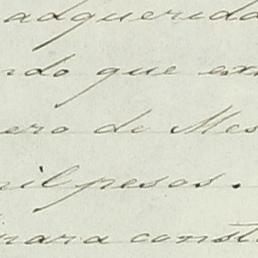 adquerida
ndo que ex
ero de Mes
mil pesos.
para const